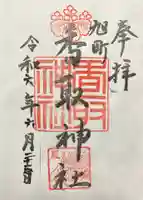 奉拝
旭町
香取神社
香取神社
令和六年六月二十二日